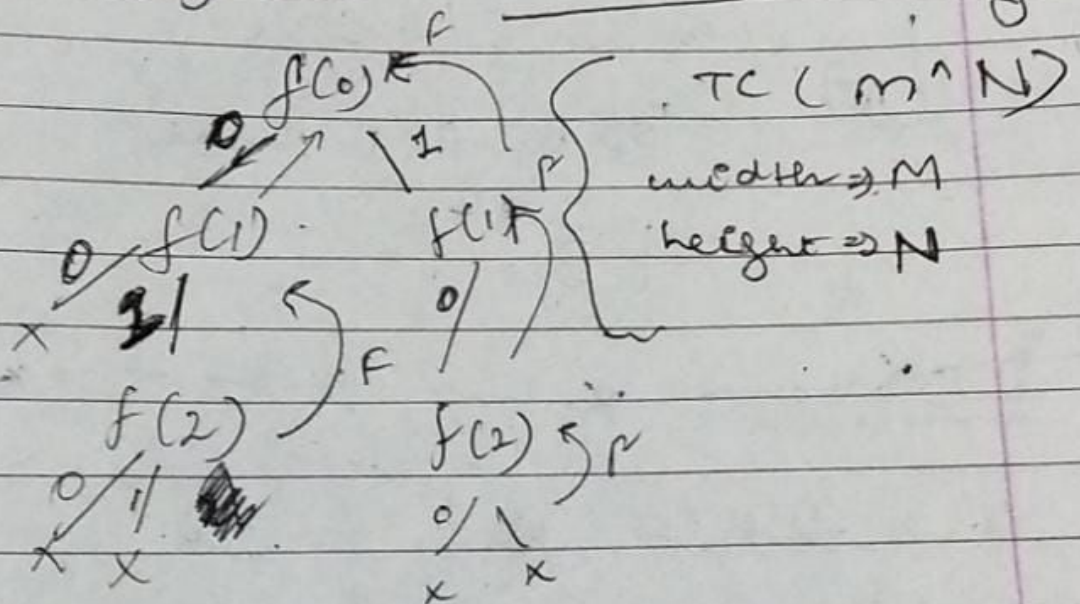 F
f(0)
TC (m^N)
0
1
F
width => M
f(1)
f(1)
height => N
0
1
0
F
f(2)
f(2)
F
0
1
0
x
x
x
x
x